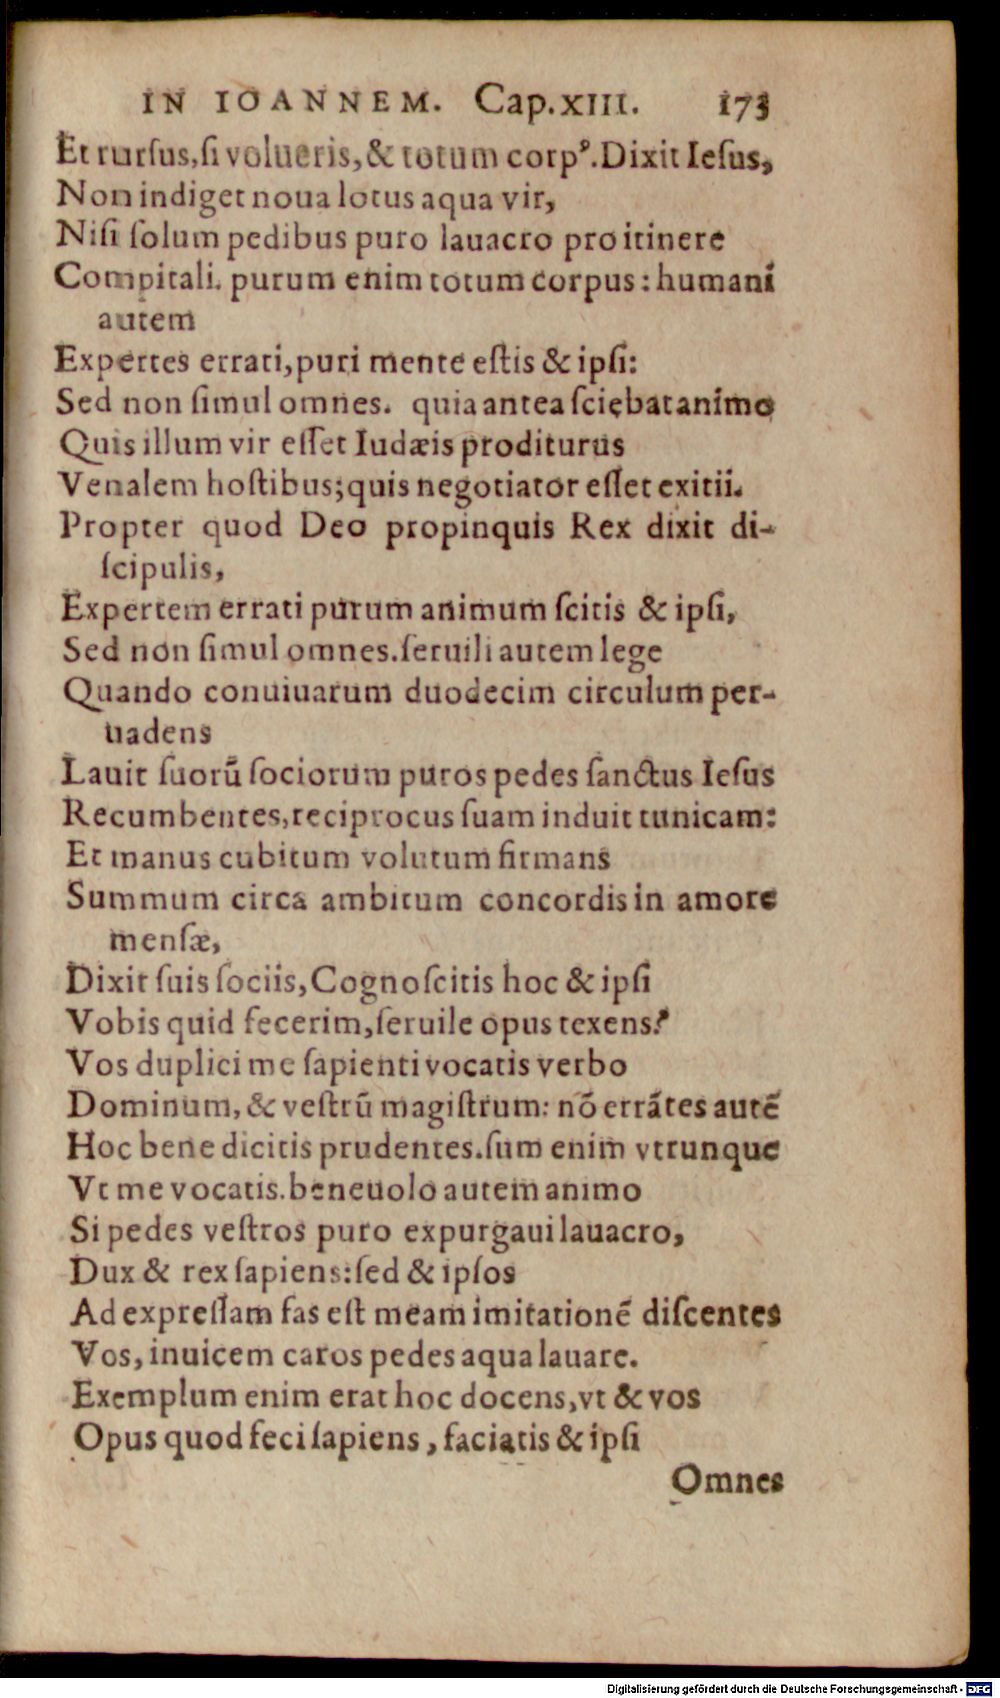 IN IOANNEM. Cap. XIII. 173
Et rursus, si volueris, & totum corpꝰ. Dixit Iesus,
Non indiget noua lotus aqua vir,
Nisi solum pedibus puro lauacro pro itinere
Compitali. purum enim totum corpus: humani
autem
Expertes errati, puri mente estis & ipsi:
Sed non simul omnes. quia antea sciebat animo
Quis illum vir esset Iudæis proditurus
Venalem hostibus; quis negotiator esset exitii.
Propter quod Deo propinquis Rex dixit di-
scipulis,
Expertem errati purum animum scitis & ipsi,
Sed non simul omnes. seruili autem lege
Quando conuiuarum duodecim circulum per-
uadens
Lauit suorū sociorum puros pedes sanctus Iesus
Recumbentes, reciprocus suam induit tunicam:
Et manus cubitum volutum firmans
Summum circa ambitum concordis in amore
mensæ,
Dixit suis sociis, Cognoscitis hoc & ipsi
Vobis quid fecerim, seruile opus texens?
Vos duplici me sapienti vocatis verbo
Dominum, & vestrū magistrum: nō errātes autē
Hoc bene dicitis prudentes. sum enim vtrunque
Vt me vocatis. beneuolo autem animo
Si pedes vestros puro expurgaui lauacro,
Dux & rex sapiens: sed & ipsos
Ad expressam fas est meam imitationē discentes
Vos, inuicem caros pedes aqua lauare.
Exemplum enim erat hoc docens, vt & vos
Opus quod feci sapiens, faciatis & ipsi
Omnes
Digitalisierung gefördert durch die Deutsche Forschungsgemeinschaft - DFG